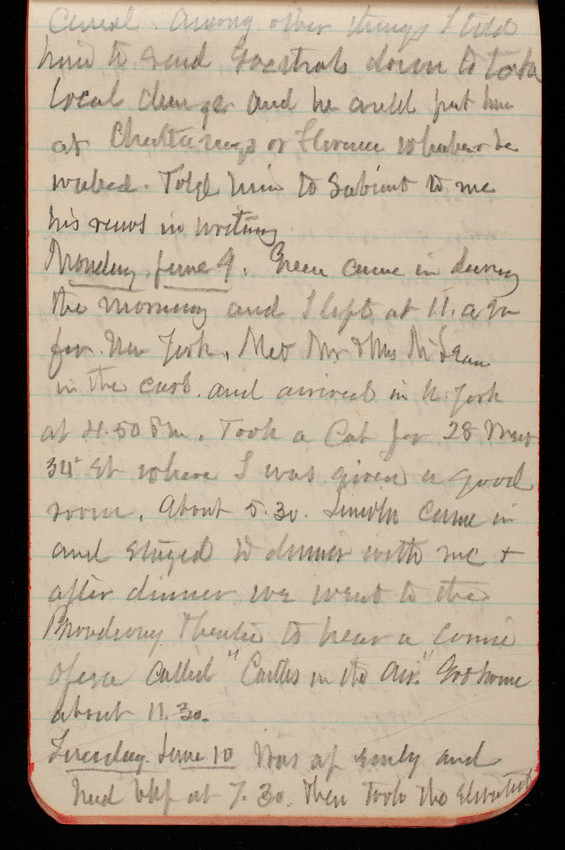 Canal. Among other things I told
him to send down to take
local charge and he could put him
at or Florence whichever he
wished. Told him to submit to me
his views in writing
Monday, June 9. Green came in during
the morning and I left at 11. a m
for New York. Met Mr & Mrs McLean
in the cars. and arrived in N. York
at 4.50 Pm. Took a Cab for 28 West
34" St where I was given a good
room. About 5.30. Lincoln came in
and stayed to dinner with me +
after dinner we went to the
Broadway Theatre to hear a comic
opera called "Castles in the Air." Got home
about 11.30.
Tuesday. June 10 Was up early and
had bkf at 7.30. Then took the Elevated